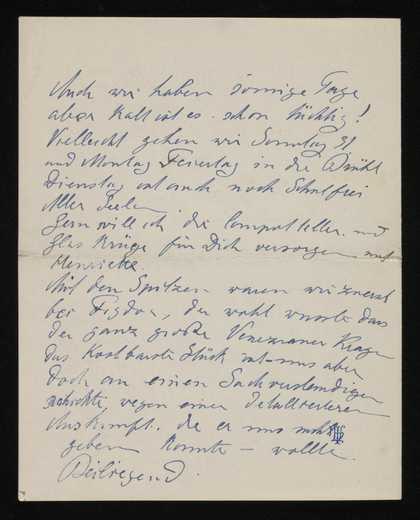 Auch wir haben sonnige Tage
aber kalt ist es schon tüchtig!
Vielleicht gehen wir Sonntag 31
und Montag Feiertag in die Brühl
Dienstag ist auch noch Schulfrei
Aller Seelen
Gern will ich die Compotteller und
Glas Krüge für Dich versorgen mit
Henriette.
Mit den Spitzen waren wir zuerst
bei Figdor, der wohl wusste dass
der ganz große Venezianer Kragen
das Kostbarste Stück ist – uns aber
doch an einen Sachverständigen
schickte, wegen einer detaillierteren
Auskunft, die er uns nicht
geben konnte – wollte.
Beiliegend.